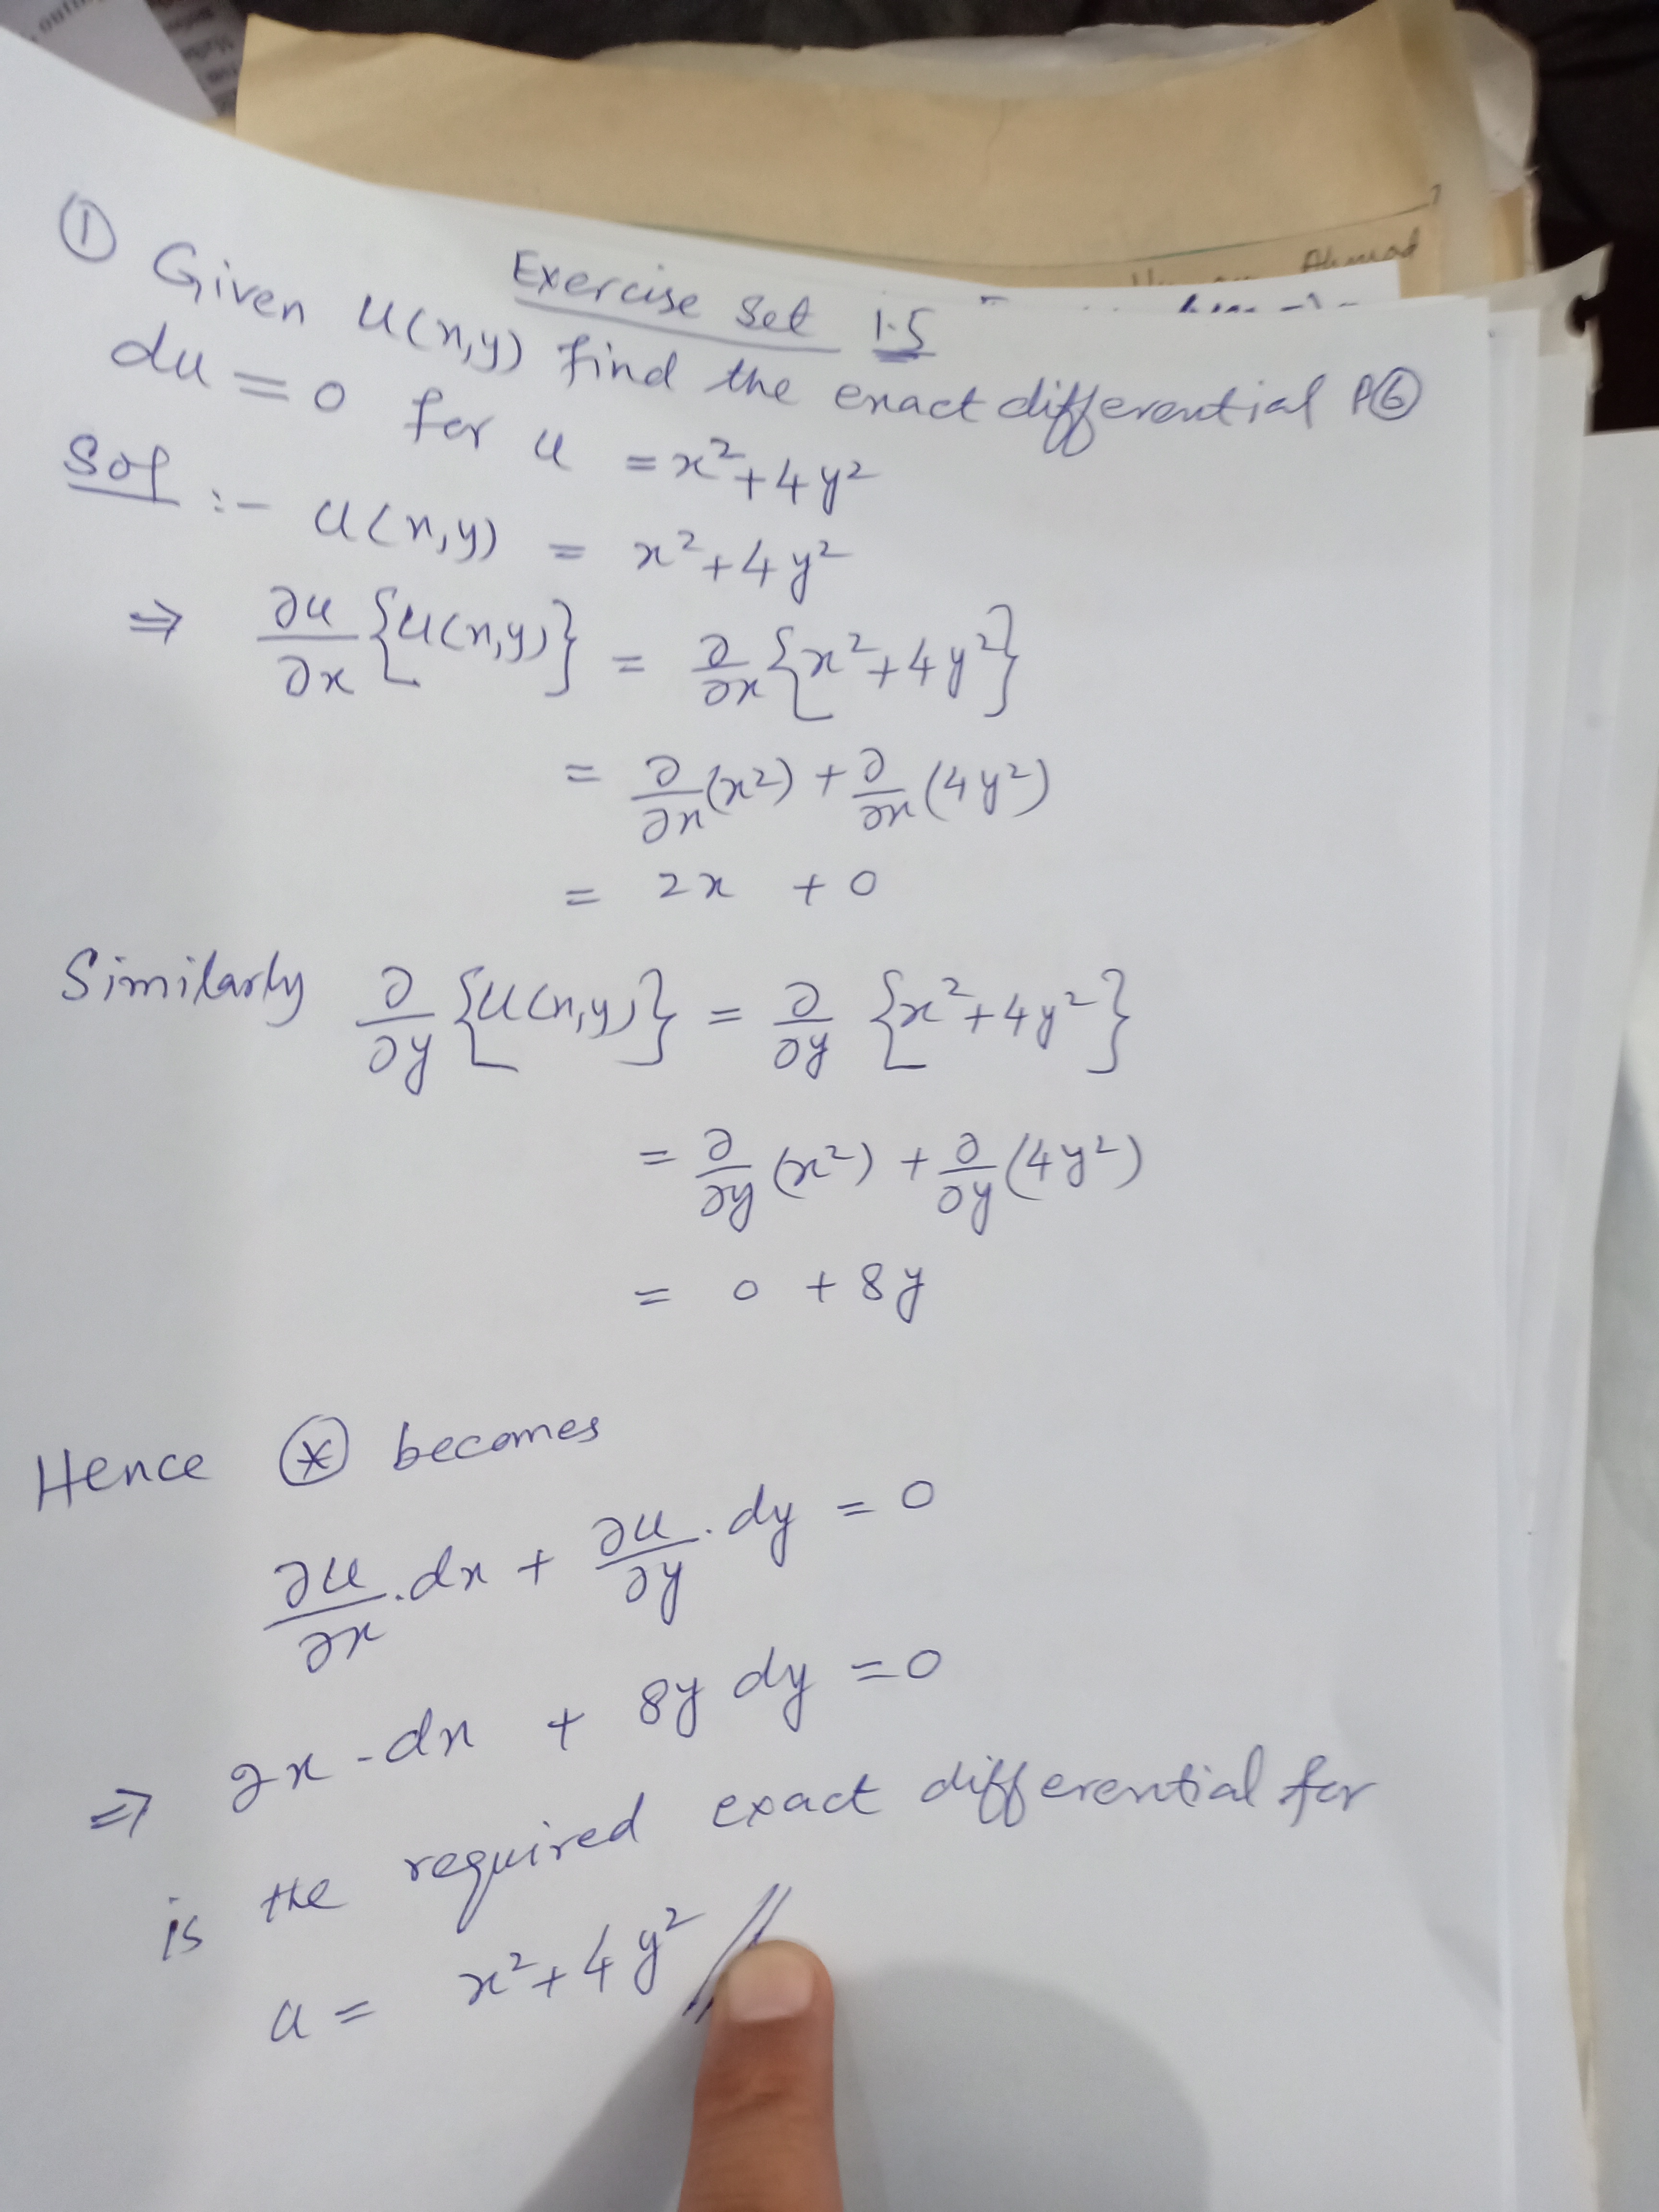 Exercise Set 1.5
① Given u(x,y) find the exact differential P⑥
du = 0 for u = x² + 4y²
Sol :- u(x,y) = x² + 4y²
⇒ ∂u/∂x {u(x,y)} = ∂/∂x {x² + 4y²}
= ∂/∂x (x²) + ∂/∂x (4y²)
= 2x + 0
Similarly ∂/∂y {u(x,y)} = ∂/∂y {x² + 4y²}
= ∂/∂y (x²) + ∂/∂y (4y²)
= 0 + 8y
Hence ⊛ becomes
∂u/∂x . dx + ∂u/∂y . dy = 0
⇒ 2x - dx + 8y dy = 0
is the required exact differential for
u = x² + 4y² //
Ahmad